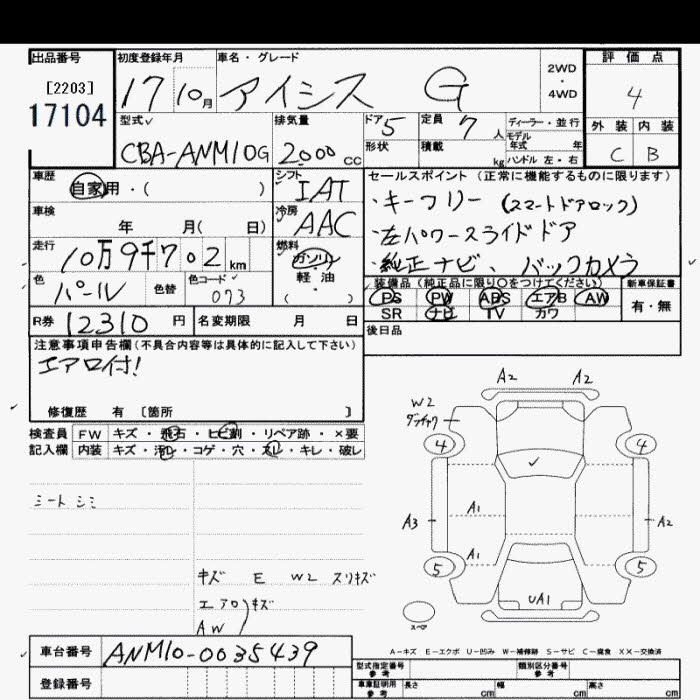 出品番号 初度登録年月 車名・グレード 2WD・4WD 評価点
[2203]
17104
17 10月 アイシス G
4
型式 排気量 ドア 5 定員 7人 ディーラー・並行 外装 内装
モデル年式 年
CBA-ANM10G 2000cc 形状 積載 kg ハンドル 左・右 C B
車歴 シフト セールスポイント (正常に機能するものに限ります)
自家用・( ) IAT
・キーフリー (スマートドアロック)
車検 年 月( 日) 冷房 AAC
・左パワースライドドア
走行 10万9千702km 燃料 ガソリン
・純正ナビ、バックカメラ
軽油
( )
色 パール 色替 色コード 073
装備品(純正品に限り○をつけてください) 新車保証書
PS PW ABS エアB AW 有・無
SR ナビ TV カワ
R券 12310円 名変期限 月 日
後日品
注意事項申告欄(不具合内容等は具体的に記入して下さい)
エアロ付!
修復歴 有 〔箇所 〕
検査員 FW キズ・飛石・ヒビ割・リペア跡・×要
記入欄 内装 キズ・汚れ・コゲ・穴・スレ・キレ・破レ
シート シミ
キズ E W2 スリキズ
エアロ キズ
AW
A2 A2
W2
4 4
A1
A3 A2
A1
5 5
UA1
スペア
A-キズ E-エクボ U-凹み W-補修跡 S-サビ C-腐食 XX-交換済
車台番号 ANM10-0035439
登録番号
型式指定番号 参考 類別区分番号 参考
車庫証明用 参考 長さ cm 幅 cm 高さ cm